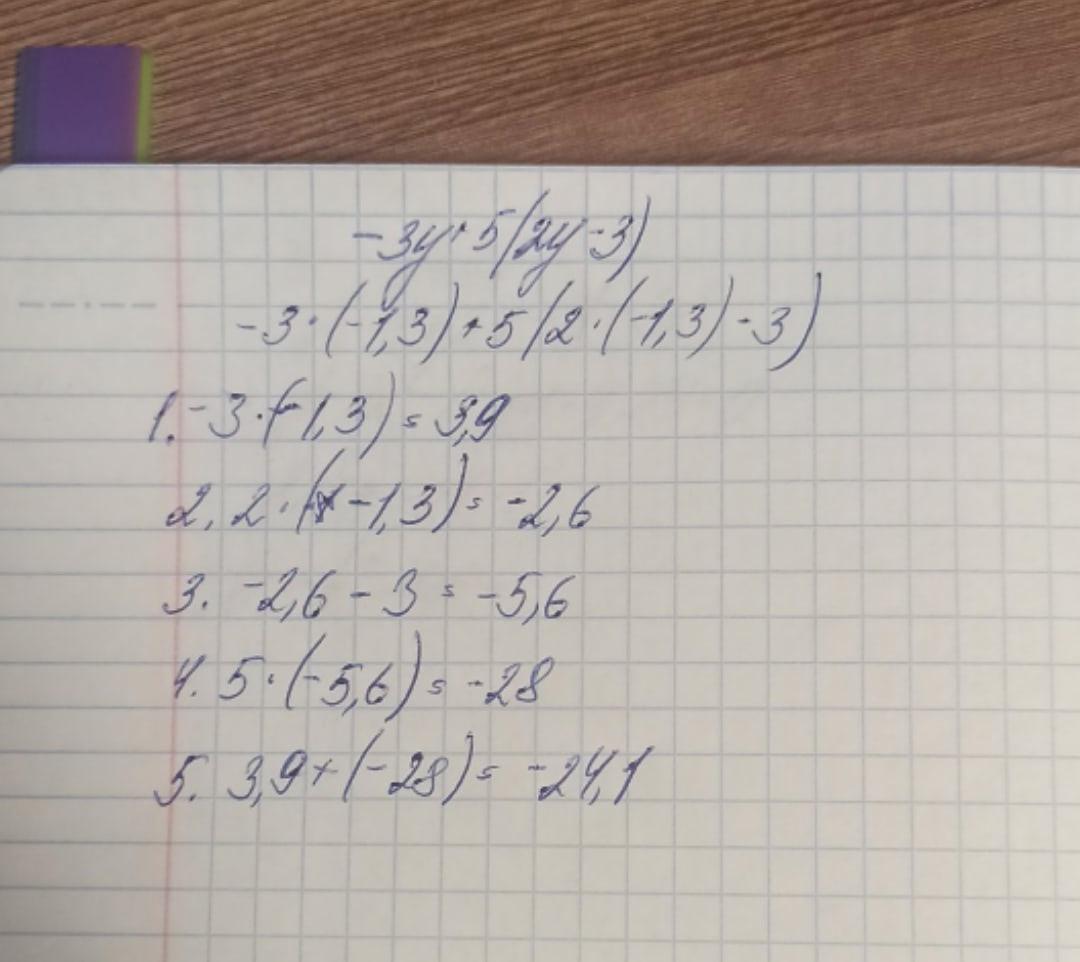 -3y+5(2y-3)
-3·(-1,3)+5(2·(-1,3)-3)
1. -3·(-1,3)=3,9
2. 2·(-1,3)=-2,6
3. -2,6-3=-5,6
4. 5·(-5,6)=-28
5. 3,9+(-28)=-24,1